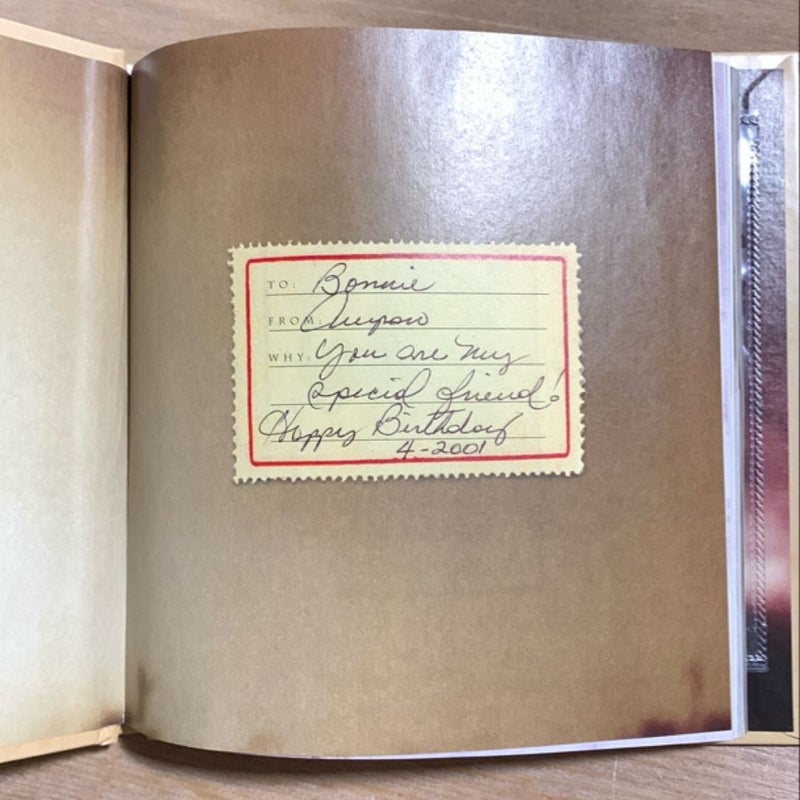 TO: Bonnie
FROM:
WHY: You are my
special friend!
Happy Birthday
4-2001